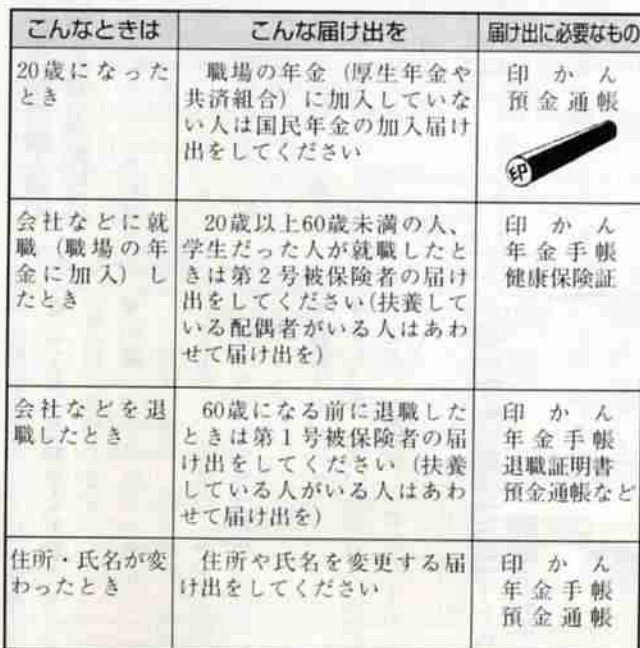 こんなときは
こんな届け出を
届け出に必要なもの
20歳になった
とき
職場の年金（厚生年金や
共済組合）に加入していな
い人は国民年金の加入届け
出をしてください
印かん
預金通帳
印
会社などに就
職（職場の年
金に加入）し
たとき
20歳以上60歳未満の人、
学生だった人が就職したと
きは第2号被保険者の届け
出をしてください(扶養して
いる配偶者がいる人はあわ
せて届け出を)
印かん
年金手帳
健康保険証
会社などを退
職したとき
60歳になる前に退職した
ときは第1号被保険者の届
け出をしてください（扶養
している人がいる人はあわ
せて届け出を)
印かん
年金手帳
退職証明書
預金通帳など
住所・氏名が変
わったとき
住所や氏名を変更する届
け出をしてください
印かん
年金手帳
預金通帳